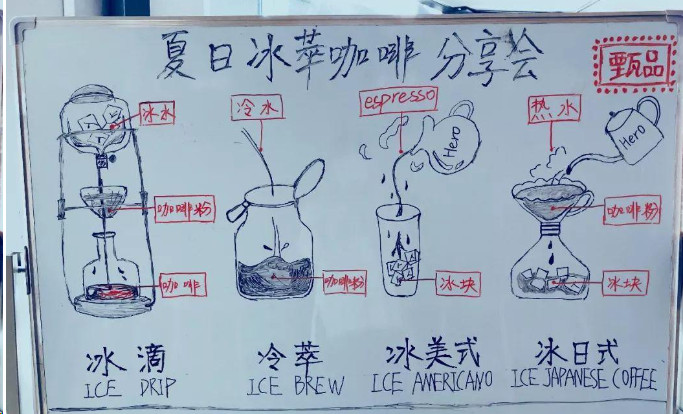 夏日冰萃咖啡分享会
甄品
冰水
冷水
espresso
热水
Hero
Hero
咖啡粉
咖啡粉
咖啡
咖啡粉
冰块
冰块
冰滴
冷萃
冰美式
冰日式
ICE DRIP
ICE BREW
ICE AMERICANO
ICE JAPANESE COFFEE